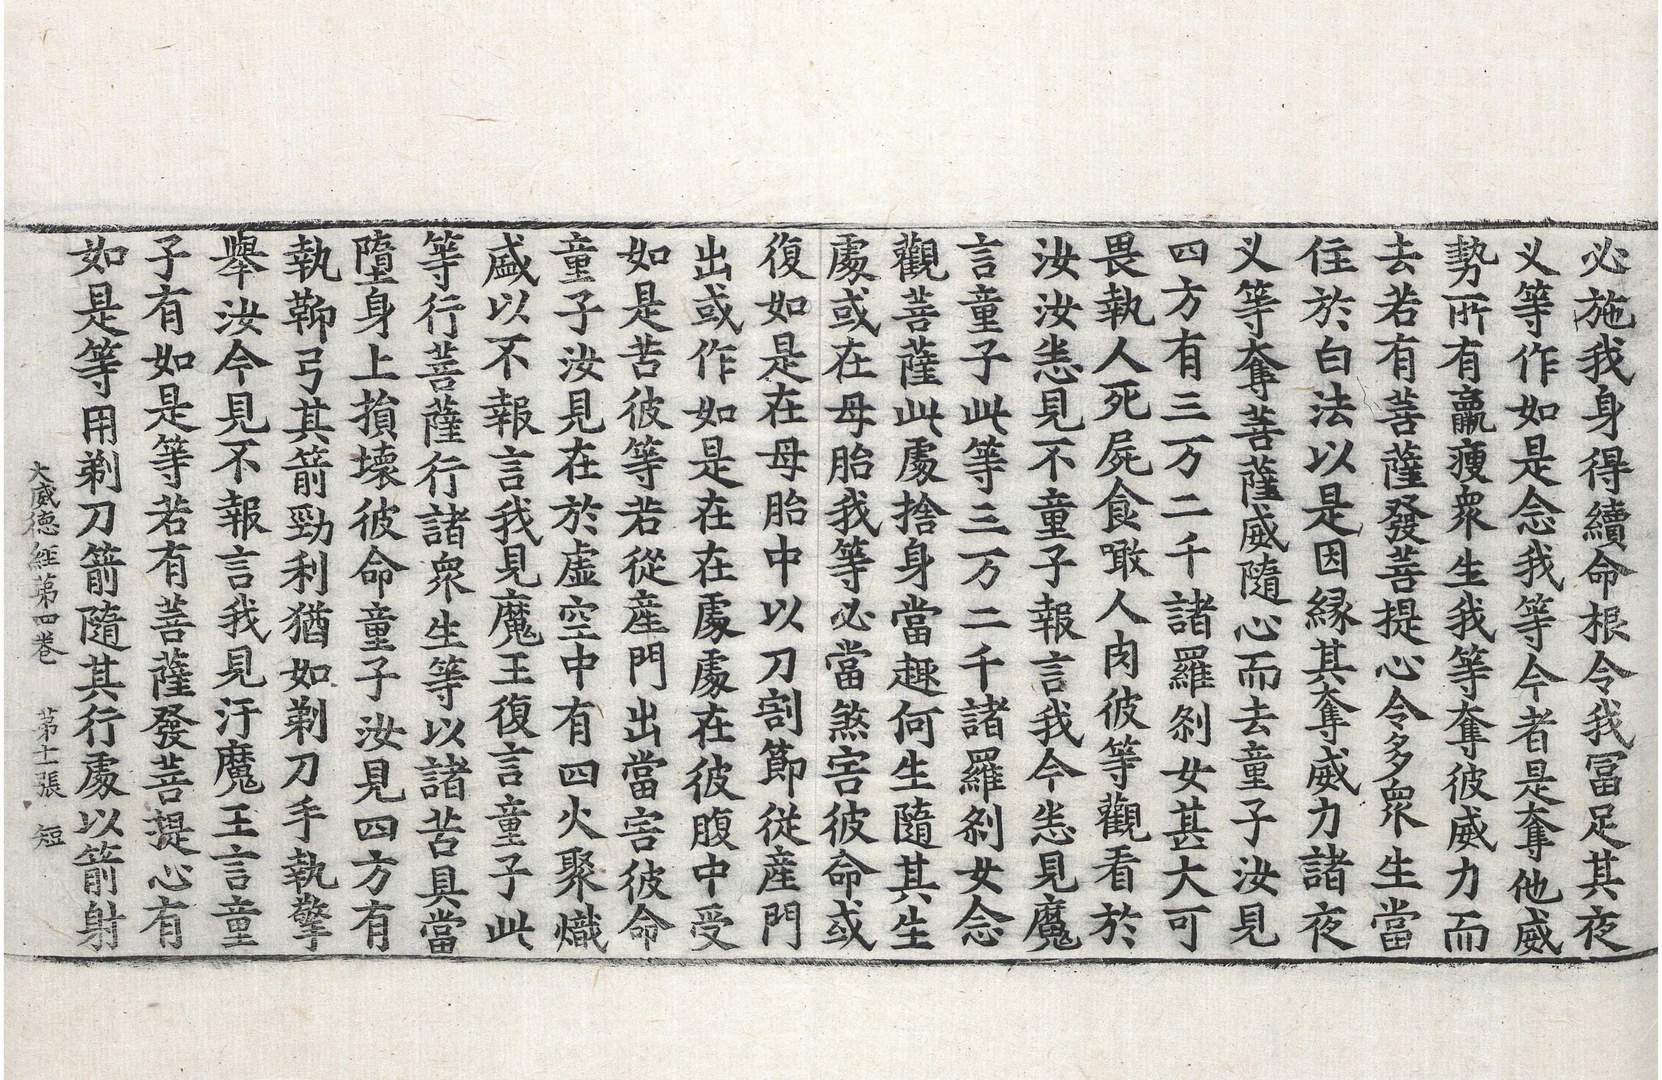 必施我身得續命根令我冨足其夜
义等作如是念我等今者是奪他威
勢所有羸瘦衆生我等奪彼威力而
去若有菩薩發菩提心令多衆生當
住於白法以是因縁其奪威力諸夜
义等奪菩薩威隨心而去童子汝見
四方有三万二千諸羅刹女甚大可
畏執人死屍食噉人肉彼等觀看於
汝汝悉見不童子報言我今悉見魔
言童子此等三万二千諸羅刹女念
觀菩薩此處捨身當趣何生隨其生
處或在母胎我等必當煞害彼命或
復如是在母胎中以刀割節從產門
出或作如是在在處處在彼腹中受
如是苦彼等若從產門出當害彼命
童子汝見在於虛空中有四火聚熾
盛以不報言我見魔王復言童子此
等行菩薩行諸衆生等以諸苦具當
墮身上損壞彼命童子汝見四方有
執鞆弓其箭勁利猶如剃刀手執擎
舉汝今見不報言我見汙魔王言童
子有如是等若有菩薩發菩提心有
如是等用剃刀箭隨其行處以箭射
大威德經第四卷 第十一張 短